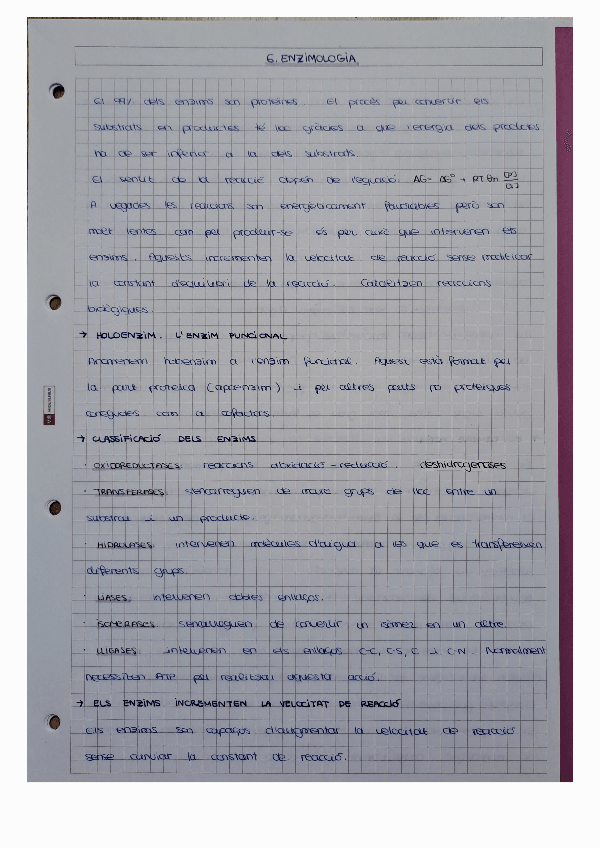 6. ENZIMOLOGIA
El 99% dels enzims són proteïnes. El procés per convertir els
substrats en productes té lloc gràcies a que l'energia dels productes
ha de ser inferior a la dels substrats.
El sentit de la reacció depèn de l'equació: ΔG = ΔG° + RT ln [P]/[S]
A vegades les reaccions són energèticament favorables però són
molt lentes com per produir-se. És per això que intervenen els
enzims. Aquests incrementen la velocitat de reacció sense modificar
la constant d'equilibri de la reacció. Catalitzen reaccions
biològiques.
→ HOLOENZIM. L'ENZIM FUNCIONAL
Anomenem holoenzim a l'enzim funcional. Aquest està format per
la part proteica (apoenzim) i per altres parts no proteiques
conegudes com a cofactors.
→ CLASSIFICACIÓ DELS ENZIMS
· OXIDOREDUCTASES: reaccions d'oxidació-reducció. deshidrogenases
· TRANSFERASES: s'encarreguen de moure grups de lloc entre un
substrat i un producte.
· HIDROLASES: intervenen molècules d'aigua a les que es transfereixen
diferents grups.
· LIASES: intervenen dobles enllaços.
· ISOMERASES: s'encarreguen de convertir un isòmer en un altre.
· LLIGASES: intervenen en els enllaços C-C, C-S, C i C-N. Normalment
necessiten ATP per realitzar aquesta acció.
→ ELS ENZIMS INCREMENTEN LA VELOCITAT DE REACCIÓ
Els enzims són capaços d'augmentar la velocitat de reacció
sense canviar la constant de reacció.